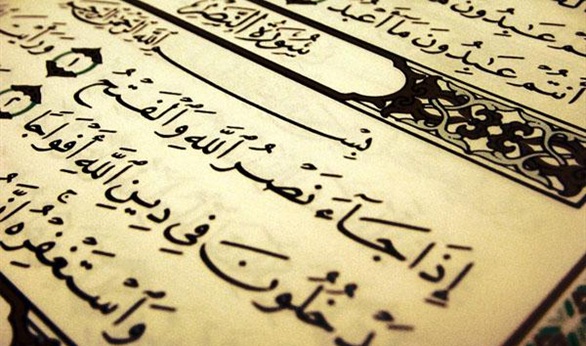 أَنتُمْ عَـٰبِدُونَ مَآ أَعْبُدُ
سُورَةُ النَّصْرِ
بِسْمِ ٱللَّهِ ٱلرَّحْمَـٰنِ ٱلرَّحِيمِ
إِذَا جَآءَ نَصْرُ ٱللَّهِ وَٱلْفَتْحُ ١ وَرَأَيْتَ
يَدْخُلُونَ فِى دِينِ ٱللَّهِ أَفْوَاجًا ٢
وَٱسْتَغْفِرْهُ إِنَّهُ